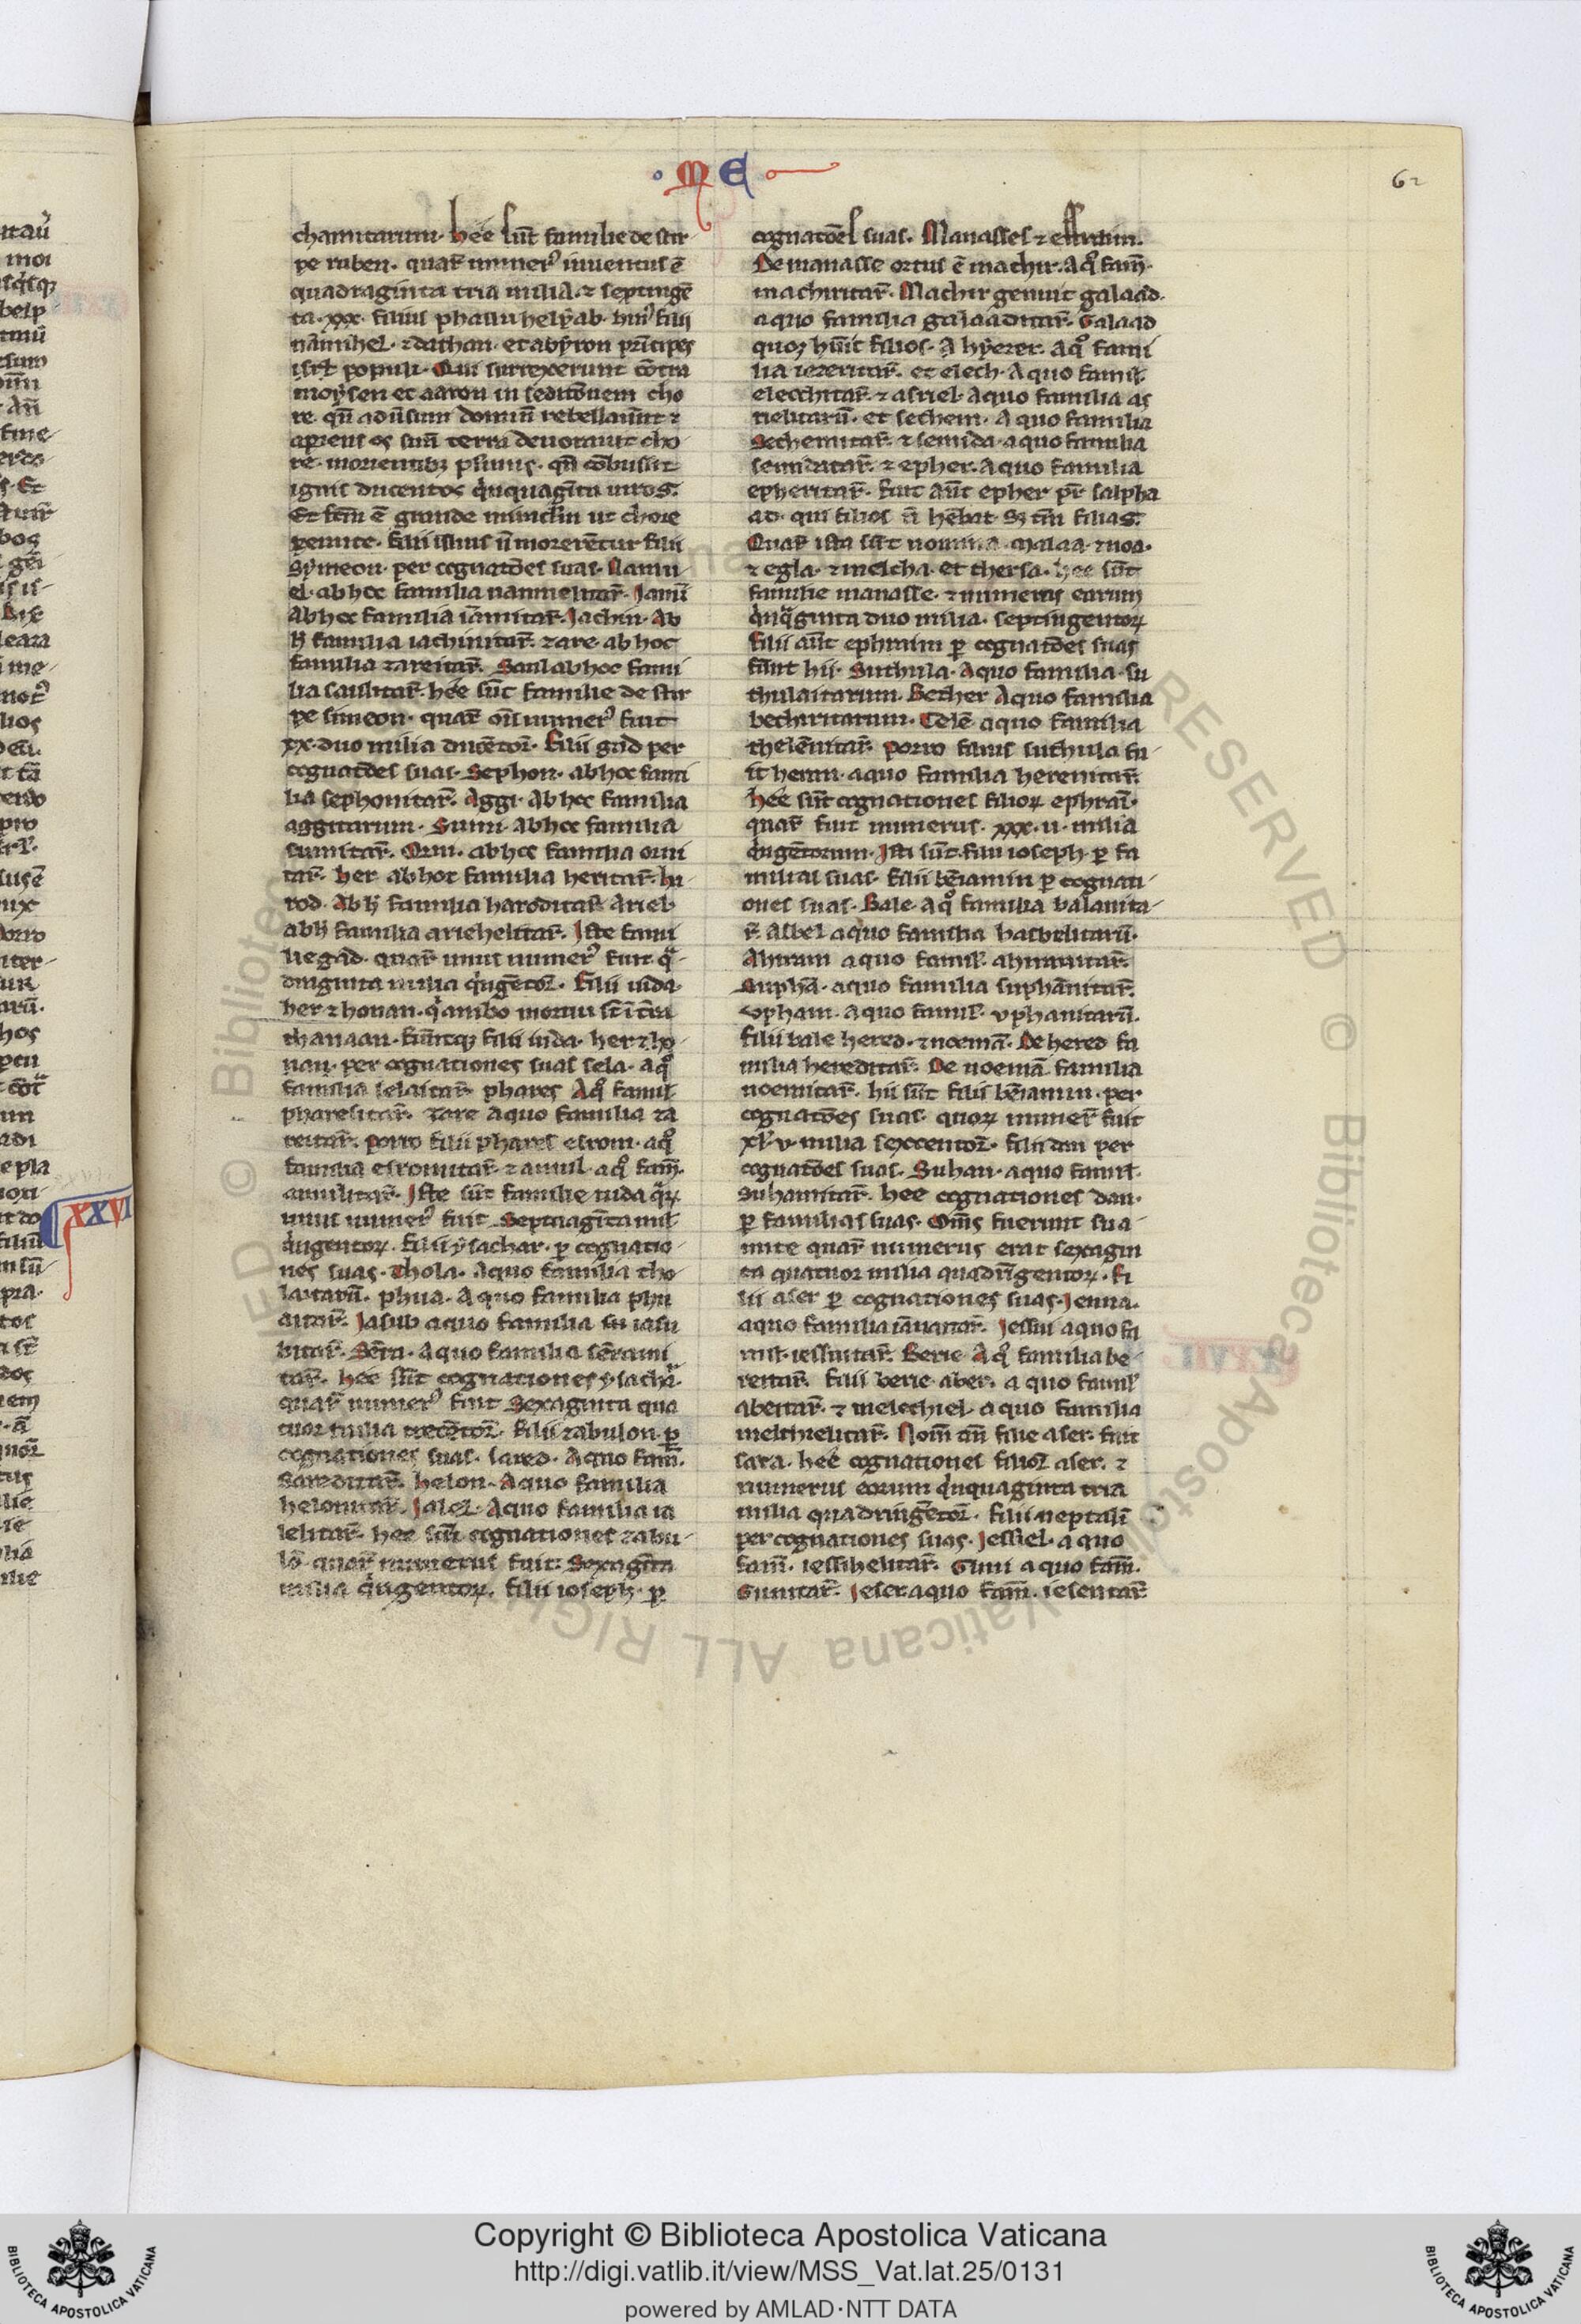 · M E
62
charmitarum. hee sūt familie de stir
pe ruben. quaꝝ numerꝰ inuentus ē
quadraginta tria milia. ⁊ septingē
ta. xxx. filius phallu helyab. huiꝰ filii
namuhel. ⁊ dathan. et abyron pncipes
isrł populi. Qui surrexerunt cōtra
moysen et aaron in seditōnem cho
re. qn̄ aduͥsum dominū rebellauͥnt ⁊
apiens os suū terra deuorauit cho
re. morientibꝫ plurimis. qn̄ cōbussit
ignis ducentos qͥnquagīta uiros.
Et fcm̄ ē grande miraclm̄ ut chore
peunte. filii illius n̄ morerētur filii
Symeon. per cognatōes suas. Namu
el. ab hoc familia namuelitaꝝ. Jamī
Ab hoc familia iāmitaꝝ. Jachin. Ab
h̄ familia iachinitaꝝ. zare. ab hoc
familia zareitaꝝ. Saul ab hoc fami
lia saulitaꝝ. hee sūt familie de stir
pe simeon. quaꝝ oīs numerꝰ fuit
xx. duo milia ducētoꝝ. Filii gad per
cognatōes suas. Sephon. ab hoc fami
lia sephonitaꝝ. Aggi. Ab hoc familia
aggitarum. Suni. Ab hoc familia
sunitaꝝ. Ozni. ab hoc familia ozni
taꝝ. her ab hoc familia heritaꝝ. ha
rod. Ab h̄ familia haroditaꝝ. Ariel
ab h̄ familia arielitaꝝ. Iste fami
lie gad. quaꝝ unius numerꝰ fuit qͣ
draginta milia qͥngētoꝝ. Filii iuda
her ⁊ honan. qͥ ambo mortui st̄ ī tr̄a
chanaan. fuͥntqꝫ filii iuda. her ⁊ ho
nan. per cognationes suas sela. aqͦ
familia selaitaꝝ. phares Aqͦ famił
pharesitaꝝ. zare Aquo familia za
reitaꝝ. porro filii phares esrom. aqͦ
familia esromitaꝝ. ⁊ amul. aqͦ fam̄.
amulitaꝝ. Iste sūt familie iuda qͣꝝ
unius numerꝰ fuit Septuagīta mił
qͥngentoꝝ. filii ysachar. ꝑ cognatio
nes suas. Thola. Aquo familia tho
laitarū. phua. A quo familia phu
aitaꝝ. Jasub aquo familia su iasu
bitaꝝ. Semrā. Aquo familia sērani
taꝝ. hee sūt cognationes ysachaꝝ
quaꝝ numerꝰ fuit Sexaginta qua
tuor milia trecētoꝝ. filii zabulon. ꝑ
cognationes suas. sared. Aquo fam̄.
Sareditaꝝ. helon. Aquo familia
helonitaꝝ. Jalel. Aquo familia ia
lelitaꝝ. hee sūt cognationes zabu
lō. quaꝝ numerus fuit. Sexagīta
milia qͥngentoꝝ. filii ioseph. ꝑ
cognatōes suas. Manasses ⁊ effraim.
De manasse ortus ē machir. Aqͦ fam̄.
machiritaꝝ. Machir genuit galaad.
aquo familia galaaditaꝝ. Galaad
quoꝫ huīt filios. A hyezer. Aqͦ fami
lia iezeritaꝝ. et elech. Aquo famił
elecchitaꝝ. ⁊ asriel. Aquo familia as
rielitarū. et sechem. A quo familia
Sechemitaꝝ. ⁊ semida. aquo familia
semidataꝝ. ⁊ epher. Aquo familia
epheritaꝝ. fuit aūt epher pr̄ salpha
ad. qui filios n̄ hēbat. Sꝫ tm̄ filias.
Quaꝝ ista sūt nomina. Malaa. ⁊ noa.
⁊ egla. ⁊ melcha. et thersa. hee sūt
familie manasse. ⁊ numerus earum
qͥnqͣginta duo milia. septingentoꝝ
filii aūt ephraim ꝑ cognatōes suas
fūnt hii. Suthula. Aquo familia. su
thulaitarum. Becher Aquo familia
becheritarum. Tehē. aquo familia
thehēnitaꝝ. porro filius suthula fu
it heran. aquo familia herenitaꝝ.
hee sūt cognationes filioꝝ ephraī.
quaꝝ fuit numerus. xxx. ii. milia
qͥngētorum. Isti sūt filii ioseph. ꝑ fa
milias suas. filii bēiamin ꝑ cognati
ones suas. Bale. Aqͦ familia balanita
ꝝ. Asbel aquo familia hasbelitarū.
Ahiram aquo famił. ahiramitaꝝ.
Supha. aquo familia suphanitaꝝ.
vpham. Aquo famił. vphanitarū.
filii bale hered. ⁊ noemā. De hered fa
milia hereditaꝝ. De noemā familia
noemitaꝝ. hii sūt filii bēiamin. per
cognatōes suas. quoꝝ numerꝰ fuit
xł. v. milia sexcentoꝝ. filii dan per
cognatōes suas. Suhan. aquo famił.
Suhanitaꝝ. hee cognationes dan.
ꝑ familias suas. Oms̄ fuerunt sua
nite quaꝝ numerus erat sexagin
ta quatuor milia quadrīgentoꝝ. fi
lii aser ꝑ cognationes suas. Jemna.
aquo familia iāunitaꝝ. Jessui aquo fa
mił. iessuitaꝝ. Berie Aqͦ familia be
reitaꝝ. filii berie. aber. a quo famił
abeitaꝝ. ⁊ melechiel. aquo familia
melchielitaꝝ. Nom̄ aūt filie aser. fuit
sara. hee cognationes filioꝝ aser. ⁊
numerus eorum qͥnquaginta tria
milia quadringētoꝝ. filii neptalī
per cognationes suas. Jessiel. a quo
fam̄. iessihelitaꝝ. Guni aquo fam̄.
Gunitaꝝ. Jeser aquo fam̄. ieseritaꝝ
XXVI
Copyright © Biblioteca Apostolica Vaticana
http://digi.vatlib.it/view/MSS_Vat.lat.25/0131
powered by AMLAD·NTT DATA
BIBLIOTECA APOSTOLICA VATICANA
BIBLIOTECA APOSTOLICA VATICANA